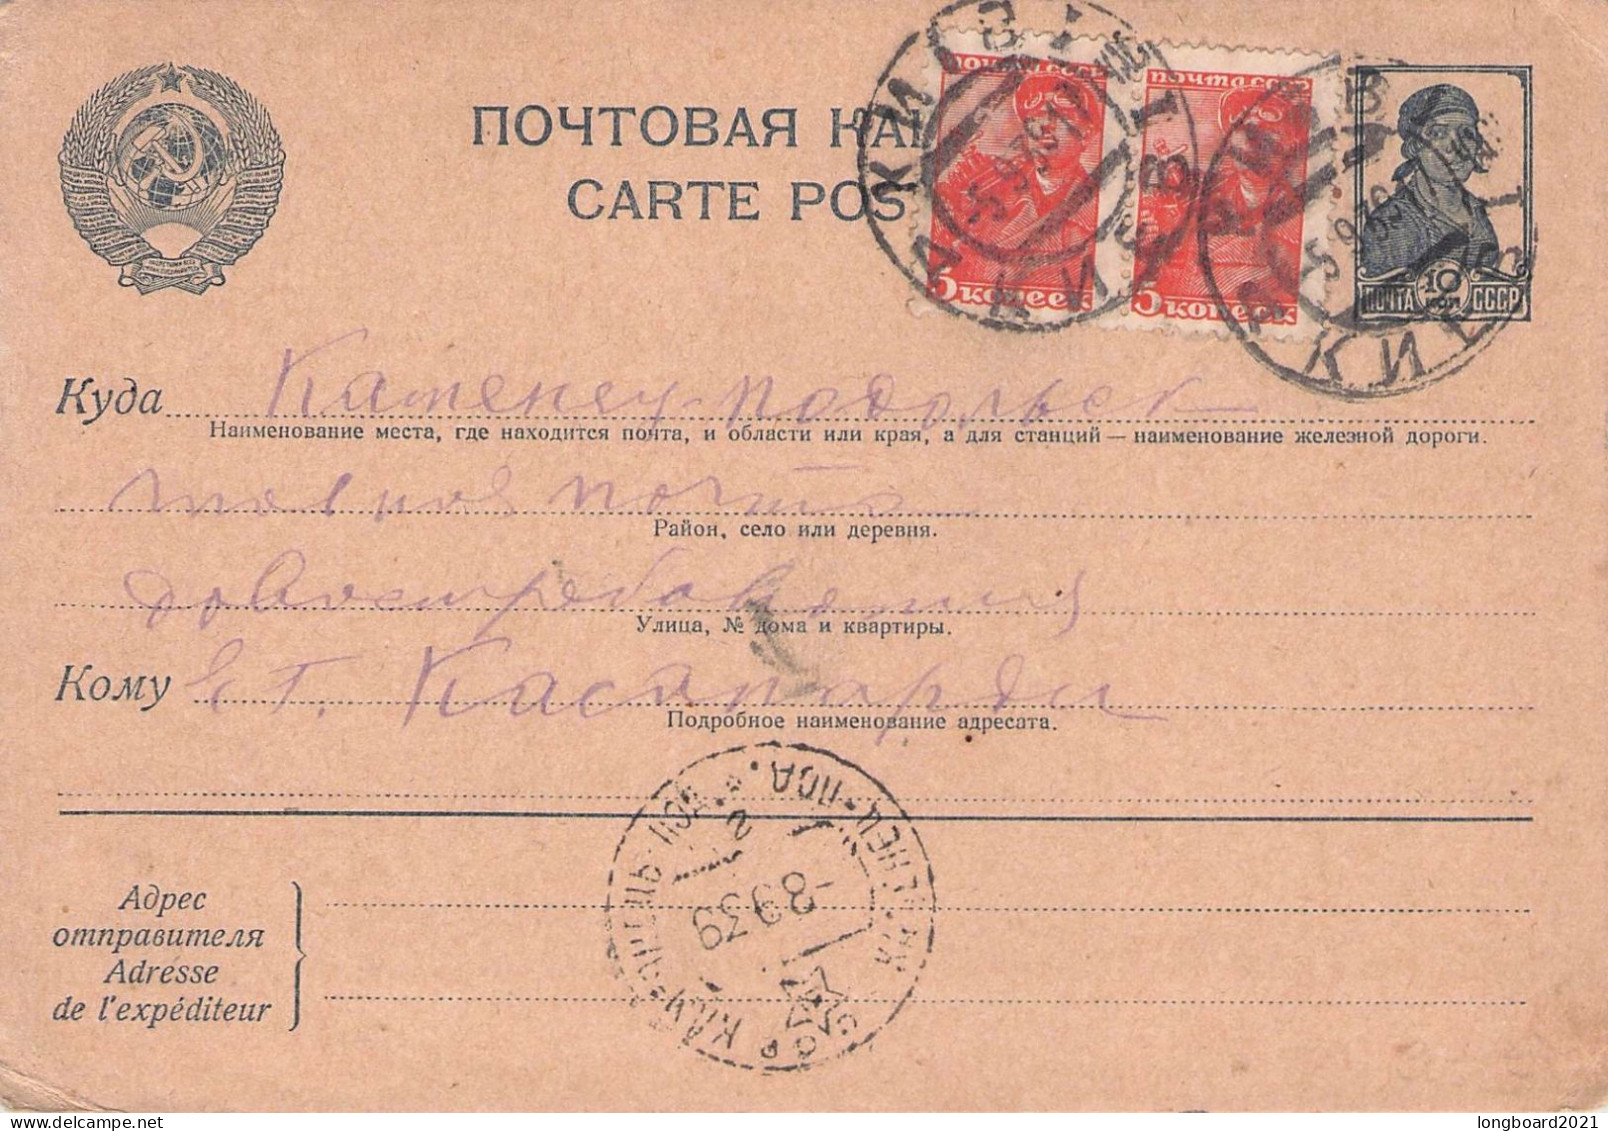 ПОЧТОВАЯ КА
CARTE POS
почта ссср
5 копеек
почта ссср
5 копеек
ПОЧТА 10 КОП СССР
КИЇВ
5 9 39
КИЇВ
5 9 39
Куда Каменец-Подольск
Наименование места, где находится почта, и области или края, а для станций — наименование железной дороги.
почта
Район, село или деревня.
довостребования
Улица, № дома и квартиры.
Кому
Подробное наименование адресата.
-8 9 39
Адрес
отправителя
Adresse
de l'expéditeur
longboard2021